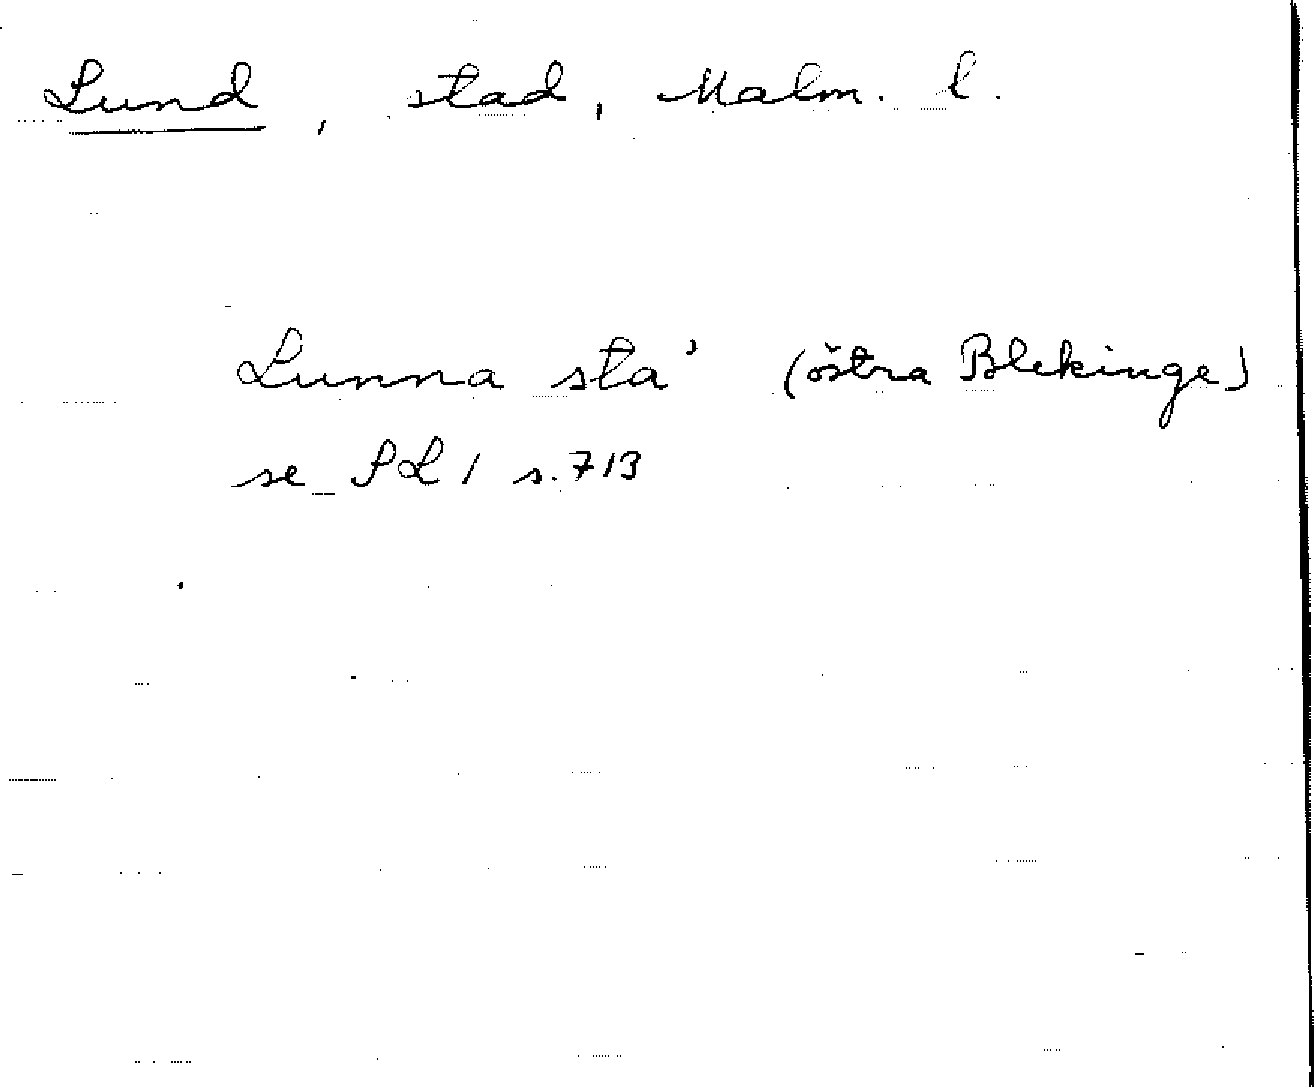 Lund, stad, Malm. l.
Lunna sta' (östra Blekinge)
se SL 1 s. 713